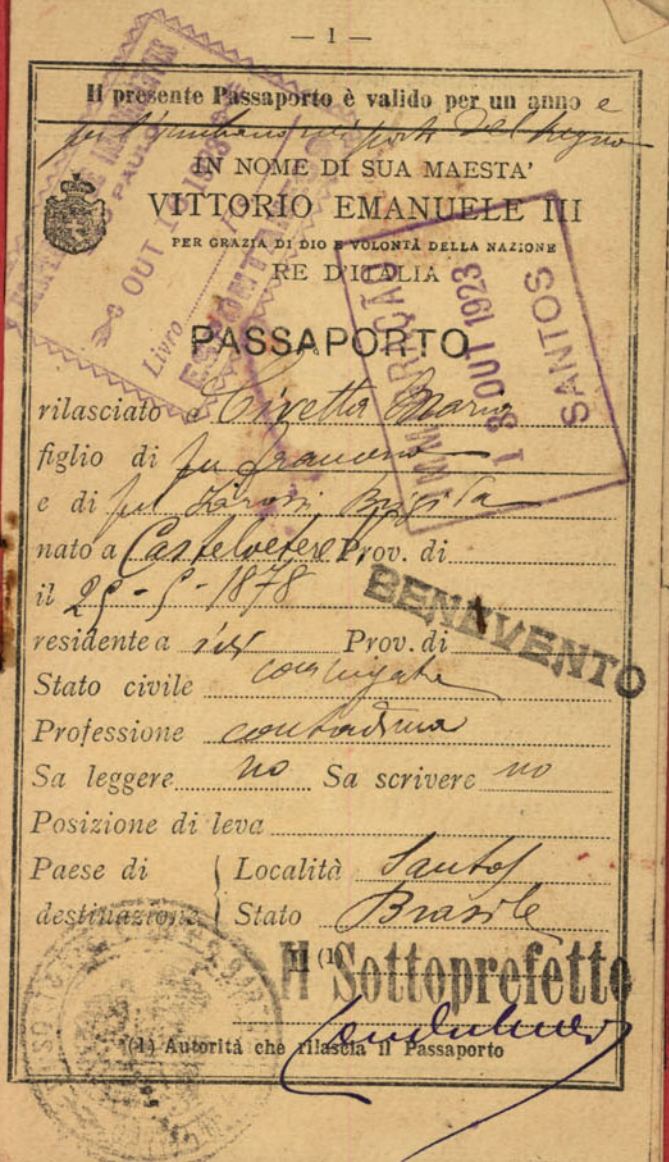 — 1 —
Il presente Passaporto è valido per un anno e
per l'imbarco nei porti del Regno
IN NOME DI SUA MAESTA'
VITTORIO EMANUELE III
PER GRAZIA DI DIO E VOLONTÀ DELLA NAZIONE
RE D'ITALIA
PASSAPORTO
rilasciato a Civetta Maria
figlio di fu
e di fu Brigida
nato a Castelvetere V. Prov. di
il 25-5-1878
BENEVENTO
residente a ivi Prov. di
Stato civile coniugata
Professione contadina
Sa leggere no Sa scrivere no
Posizione di leva
Paese di Località Santos
destinazione Stato Brasile
Il (1) Sottoprefetto
(1) Autorità che rilascia il Passaporto
S. PAULO
OUT 1923
Livro
ESPONTANEO
IMMIGRAÇÃO
18 OUT 1923
SANTOS